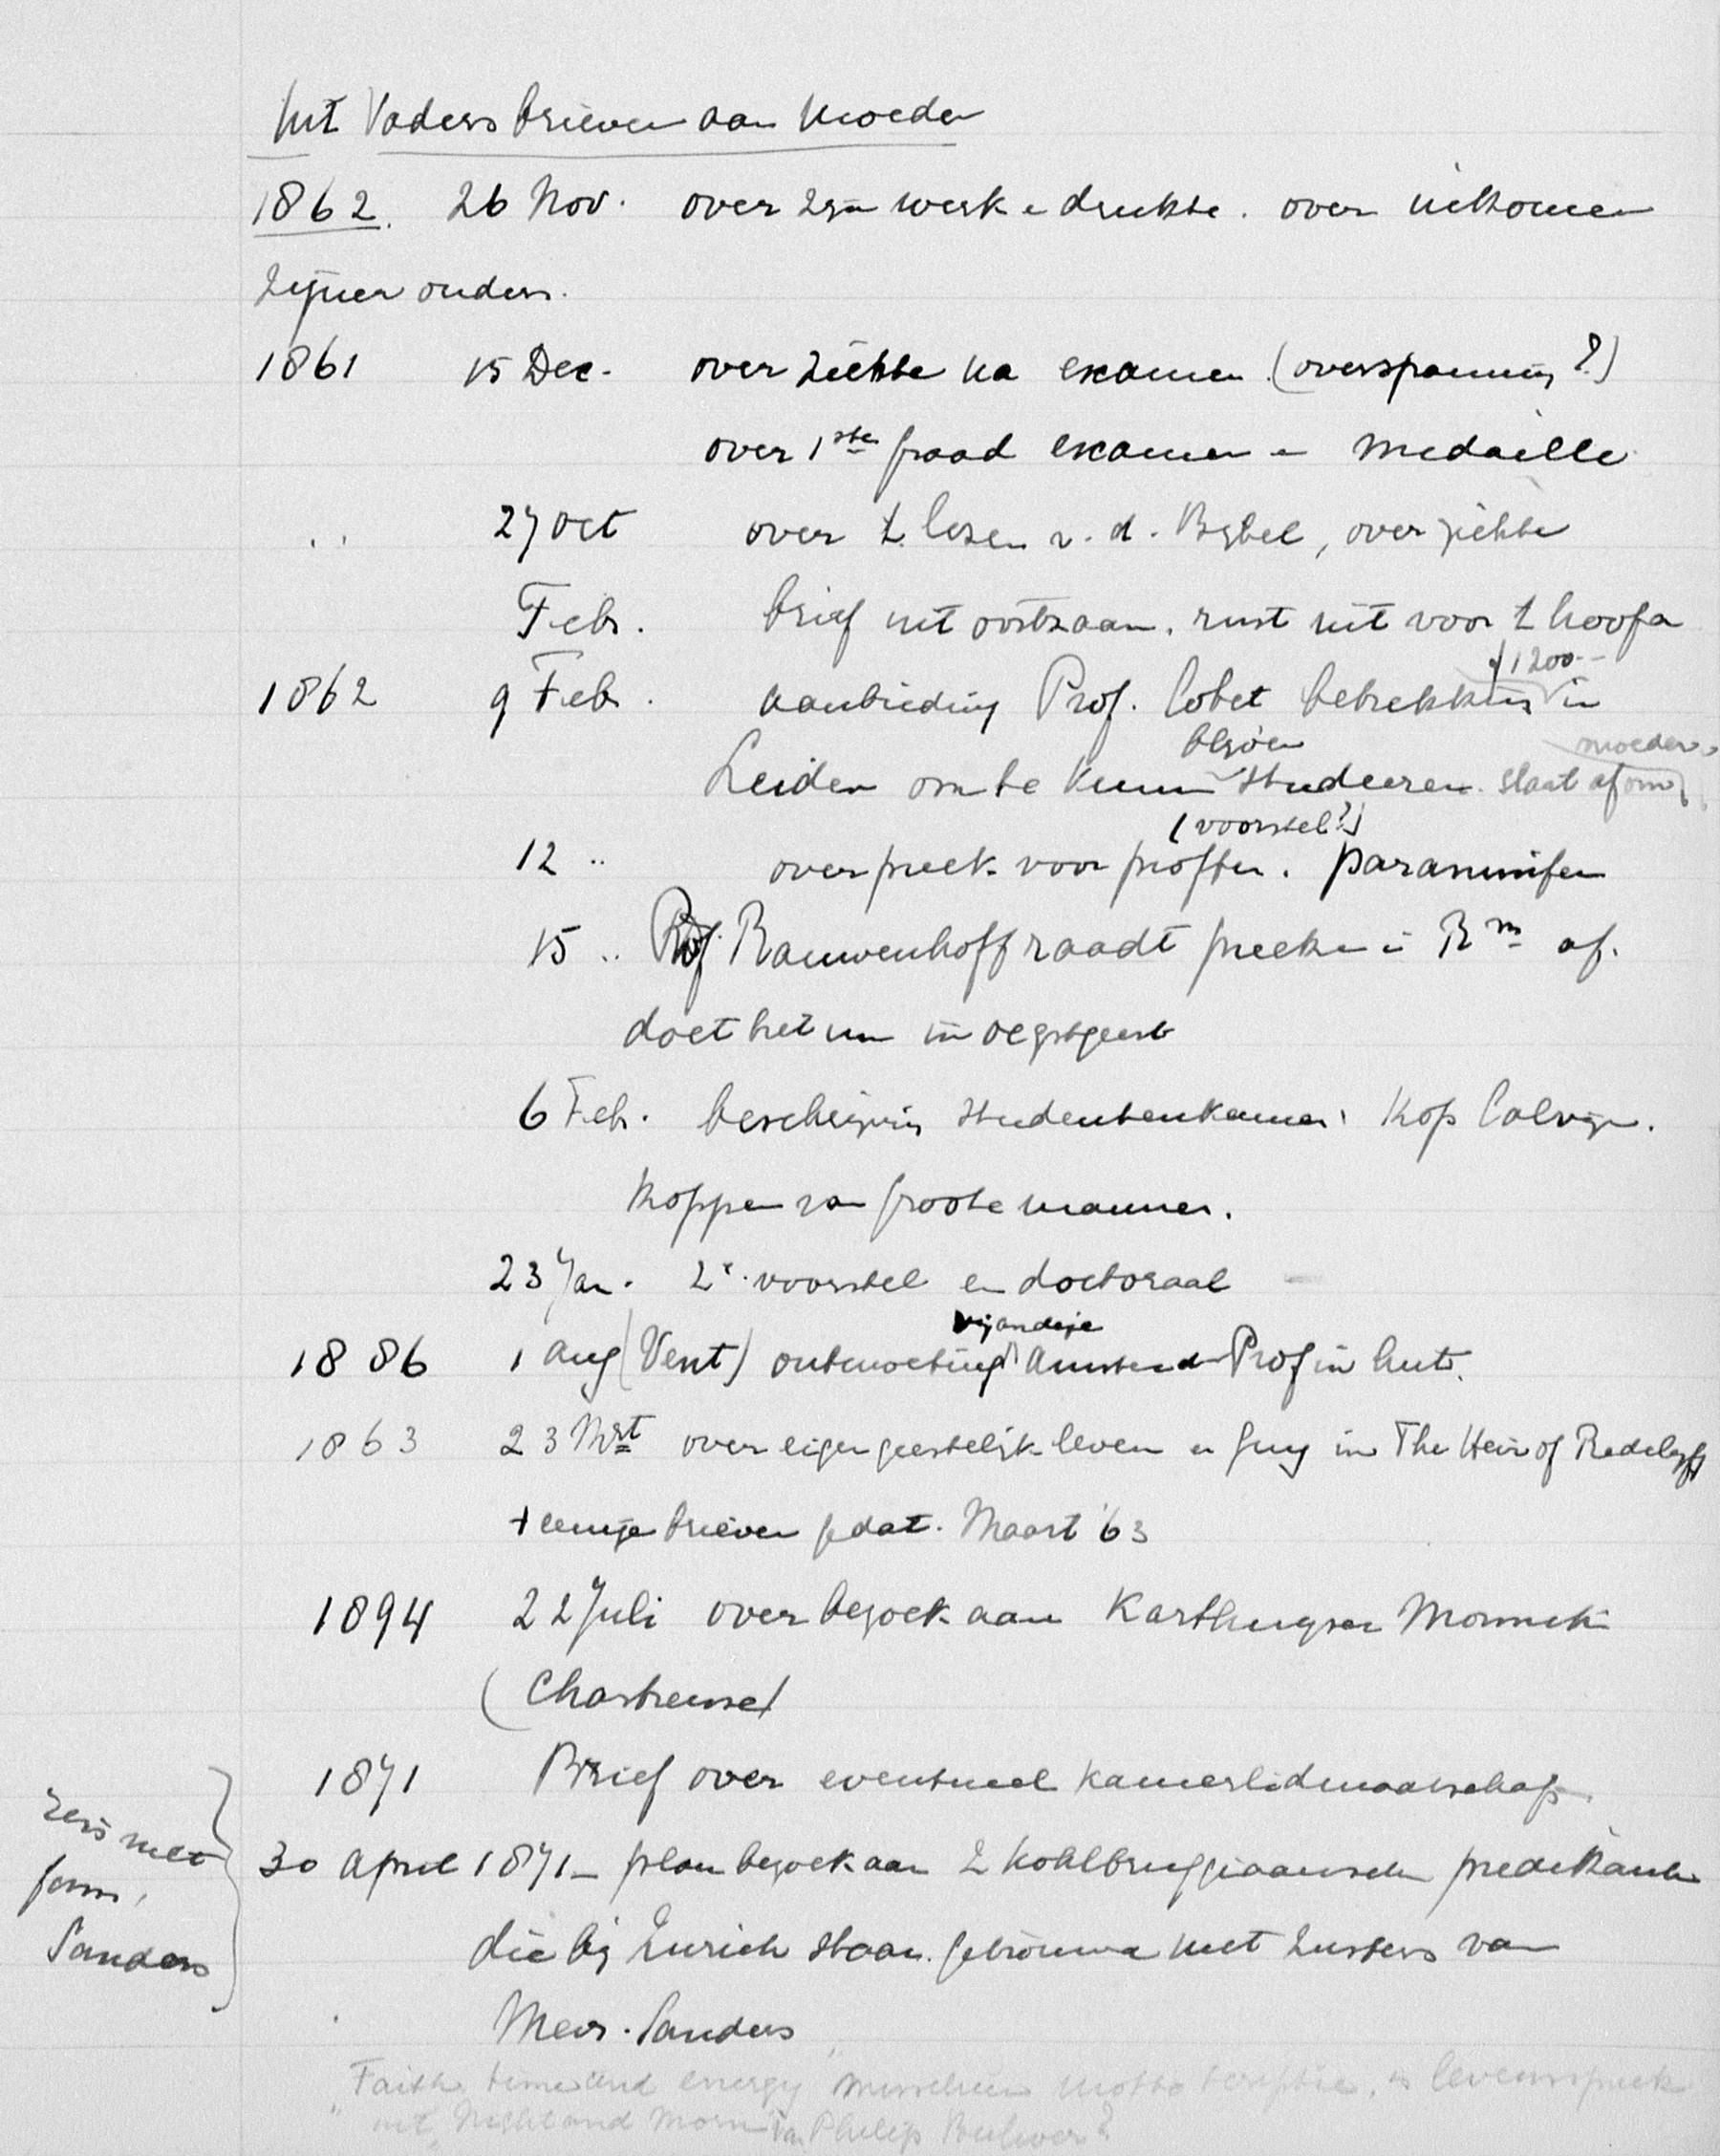 Uit Vaders brieven aan Moeder
1862. 26 Nov. over zijn werk en drukte. over inkomen
zijner ouders.
1861 15 Dec. over ziekte na examen (overspanning?)
over 1ste graad examen en medaille
" 27 Oct over 't lezen v. d. Bybel, over ziekte
Febr. brief uit oostzaan. rust uit voor 't hoofd
f 1200.-
1862 9 Febr. aanbieding Prof. Cobet betrekking in
blijven moeder
Leiden om te kunnen studeeren. slaat af om
(voorstel?)
12 " over preek voor proffen. paranimfen
15 " Prof. Rauwenhoff raadt preeken in Rm af.
doet het nu in oegstgeest
6 Feb. beschrijving studentenkamer: Kop Calvijn.
Koppen van groote mannen.
23 Jan. 2e voorstel en doctoraal
vijandige
1886 1 aug (Vent) ontmoeting Amsterd Prof in hut.
1863 23 Mrt over eigen geestelijk leven en Guy in The Heir of Redclyffe
+ eenige brieven gedat. Maart '63
1894 22 Juli over bezoek aan Karthuyser Monniken
(Chartreuse)
1871 Brief over eventueel kamerlidmaatschap.
reis met
fam.
Sanders
30 april 1871 - plan bezoek aan 2 Kohlbruggiaansche predikanten
die bij Zurich staan. getrouwd met zusters van
Mevr. Sanders
"Faith, time and energy" misschien motto scriptie, is levensspreuk
uit "Night and Morn" van Philip Bulwer?